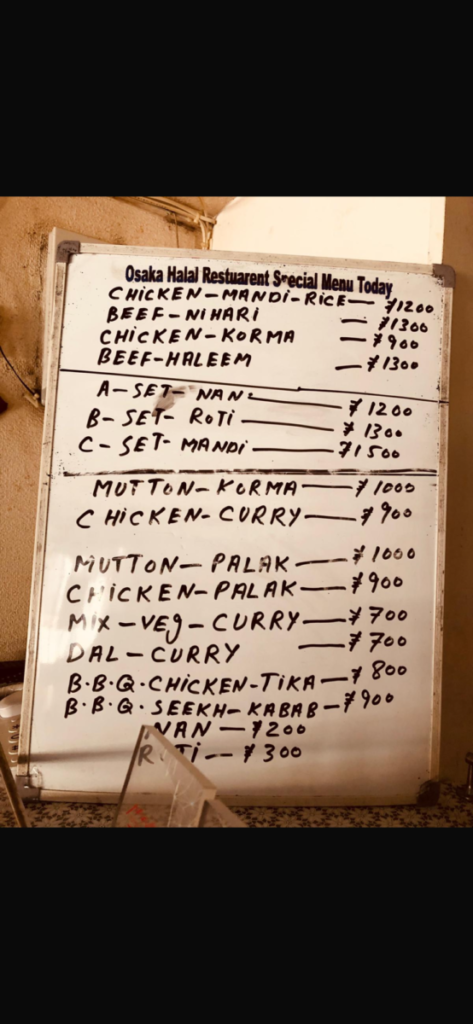 Osaka Halal Restuarent Special Menu Today
CHICKEN-MANDI-RICE— ¥1200
BEEF-NIHARI — ¥1300
CHICKEN-KORMA — ¥900
BEEF-HALEEM — ¥1300
A-SET- NAN — ¥1200
B-SET- ROTI — ¥1300
C-SET- MANDI — ¥1500
MUTTON-KORMA — ¥1000
CHICKEN-CURRY — ¥900
MUTTON-PALAK — ¥1000
CHICKEN-PALAK — ¥900
MIX-VEG-CURRY — ¥700
DAL-CURRY — ¥700
B.B.Q.CHICKEN-TIKA — ¥800
B.B.Q.SEEKH-KABAB — ¥900
NAN — ¥200
ROTI -- ¥300